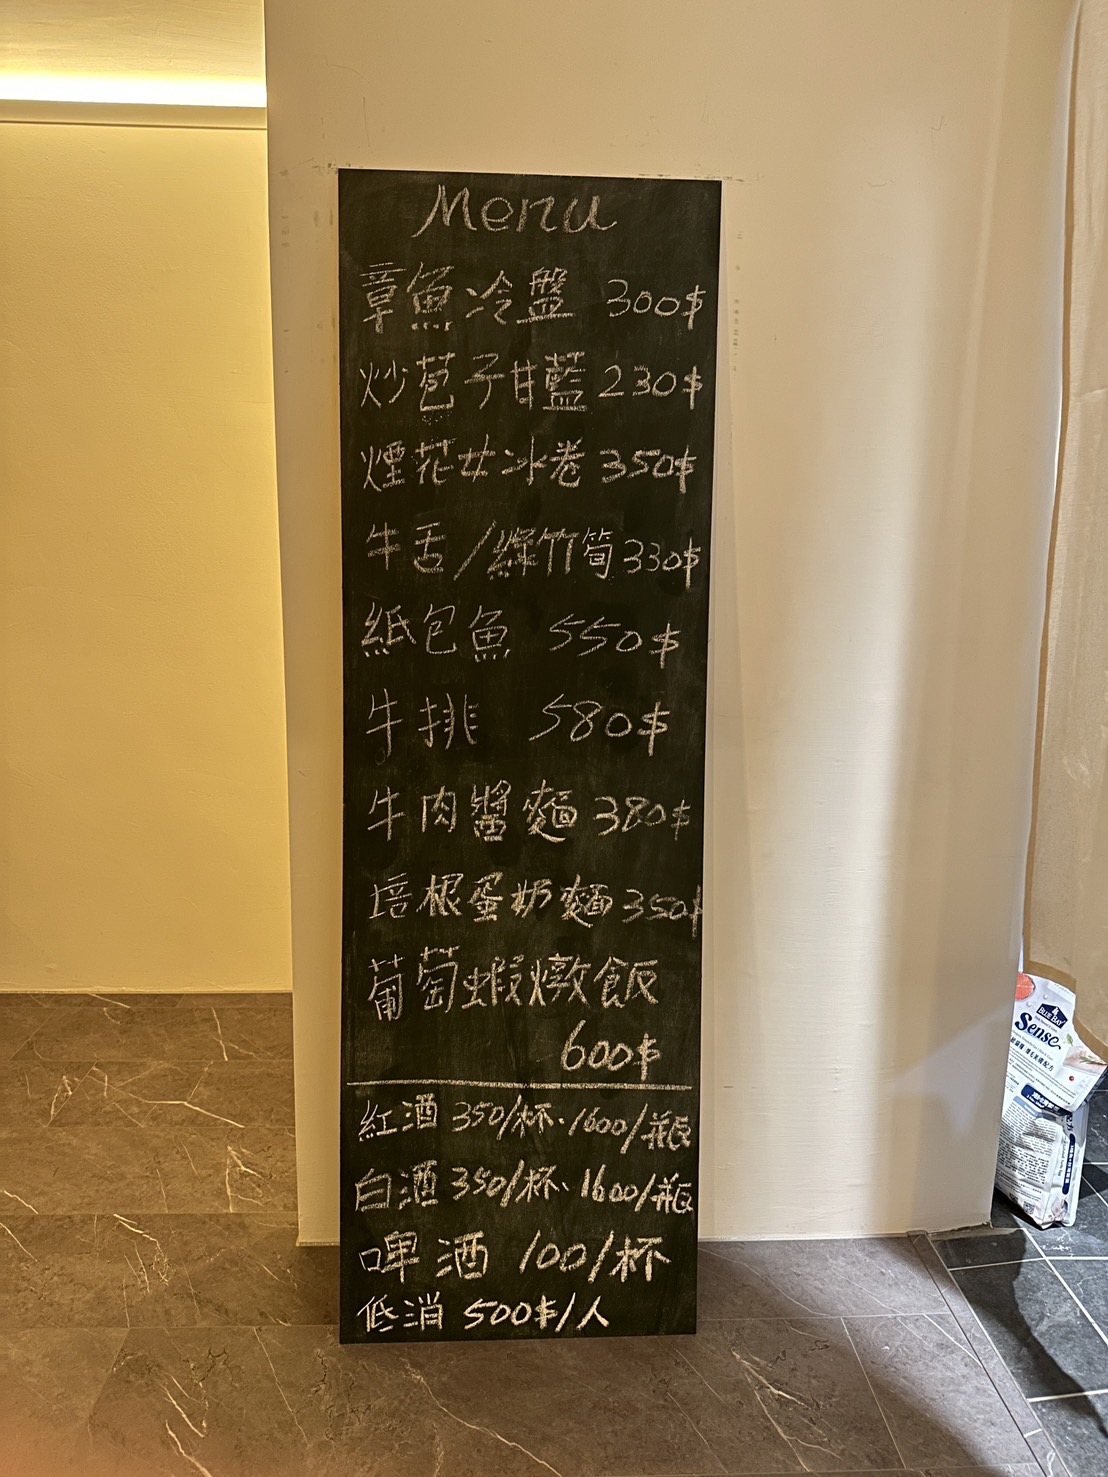 Menu
章魚冷盤 300$
炒苞子甘藍 230$
煙花女冰卷 350$
牛舌/綠竹筍 330$
紙包魚 550$
牛排 580$
牛肉醬麵 380$
培根蛋奶麵 350$
葡萄蝦燉飯
600$
紅酒 350/杯·1600/瓶
白酒 350/杯、1600/瓶
啤酒 100/杯
低消 500$/人
BLUE BAY
Sense